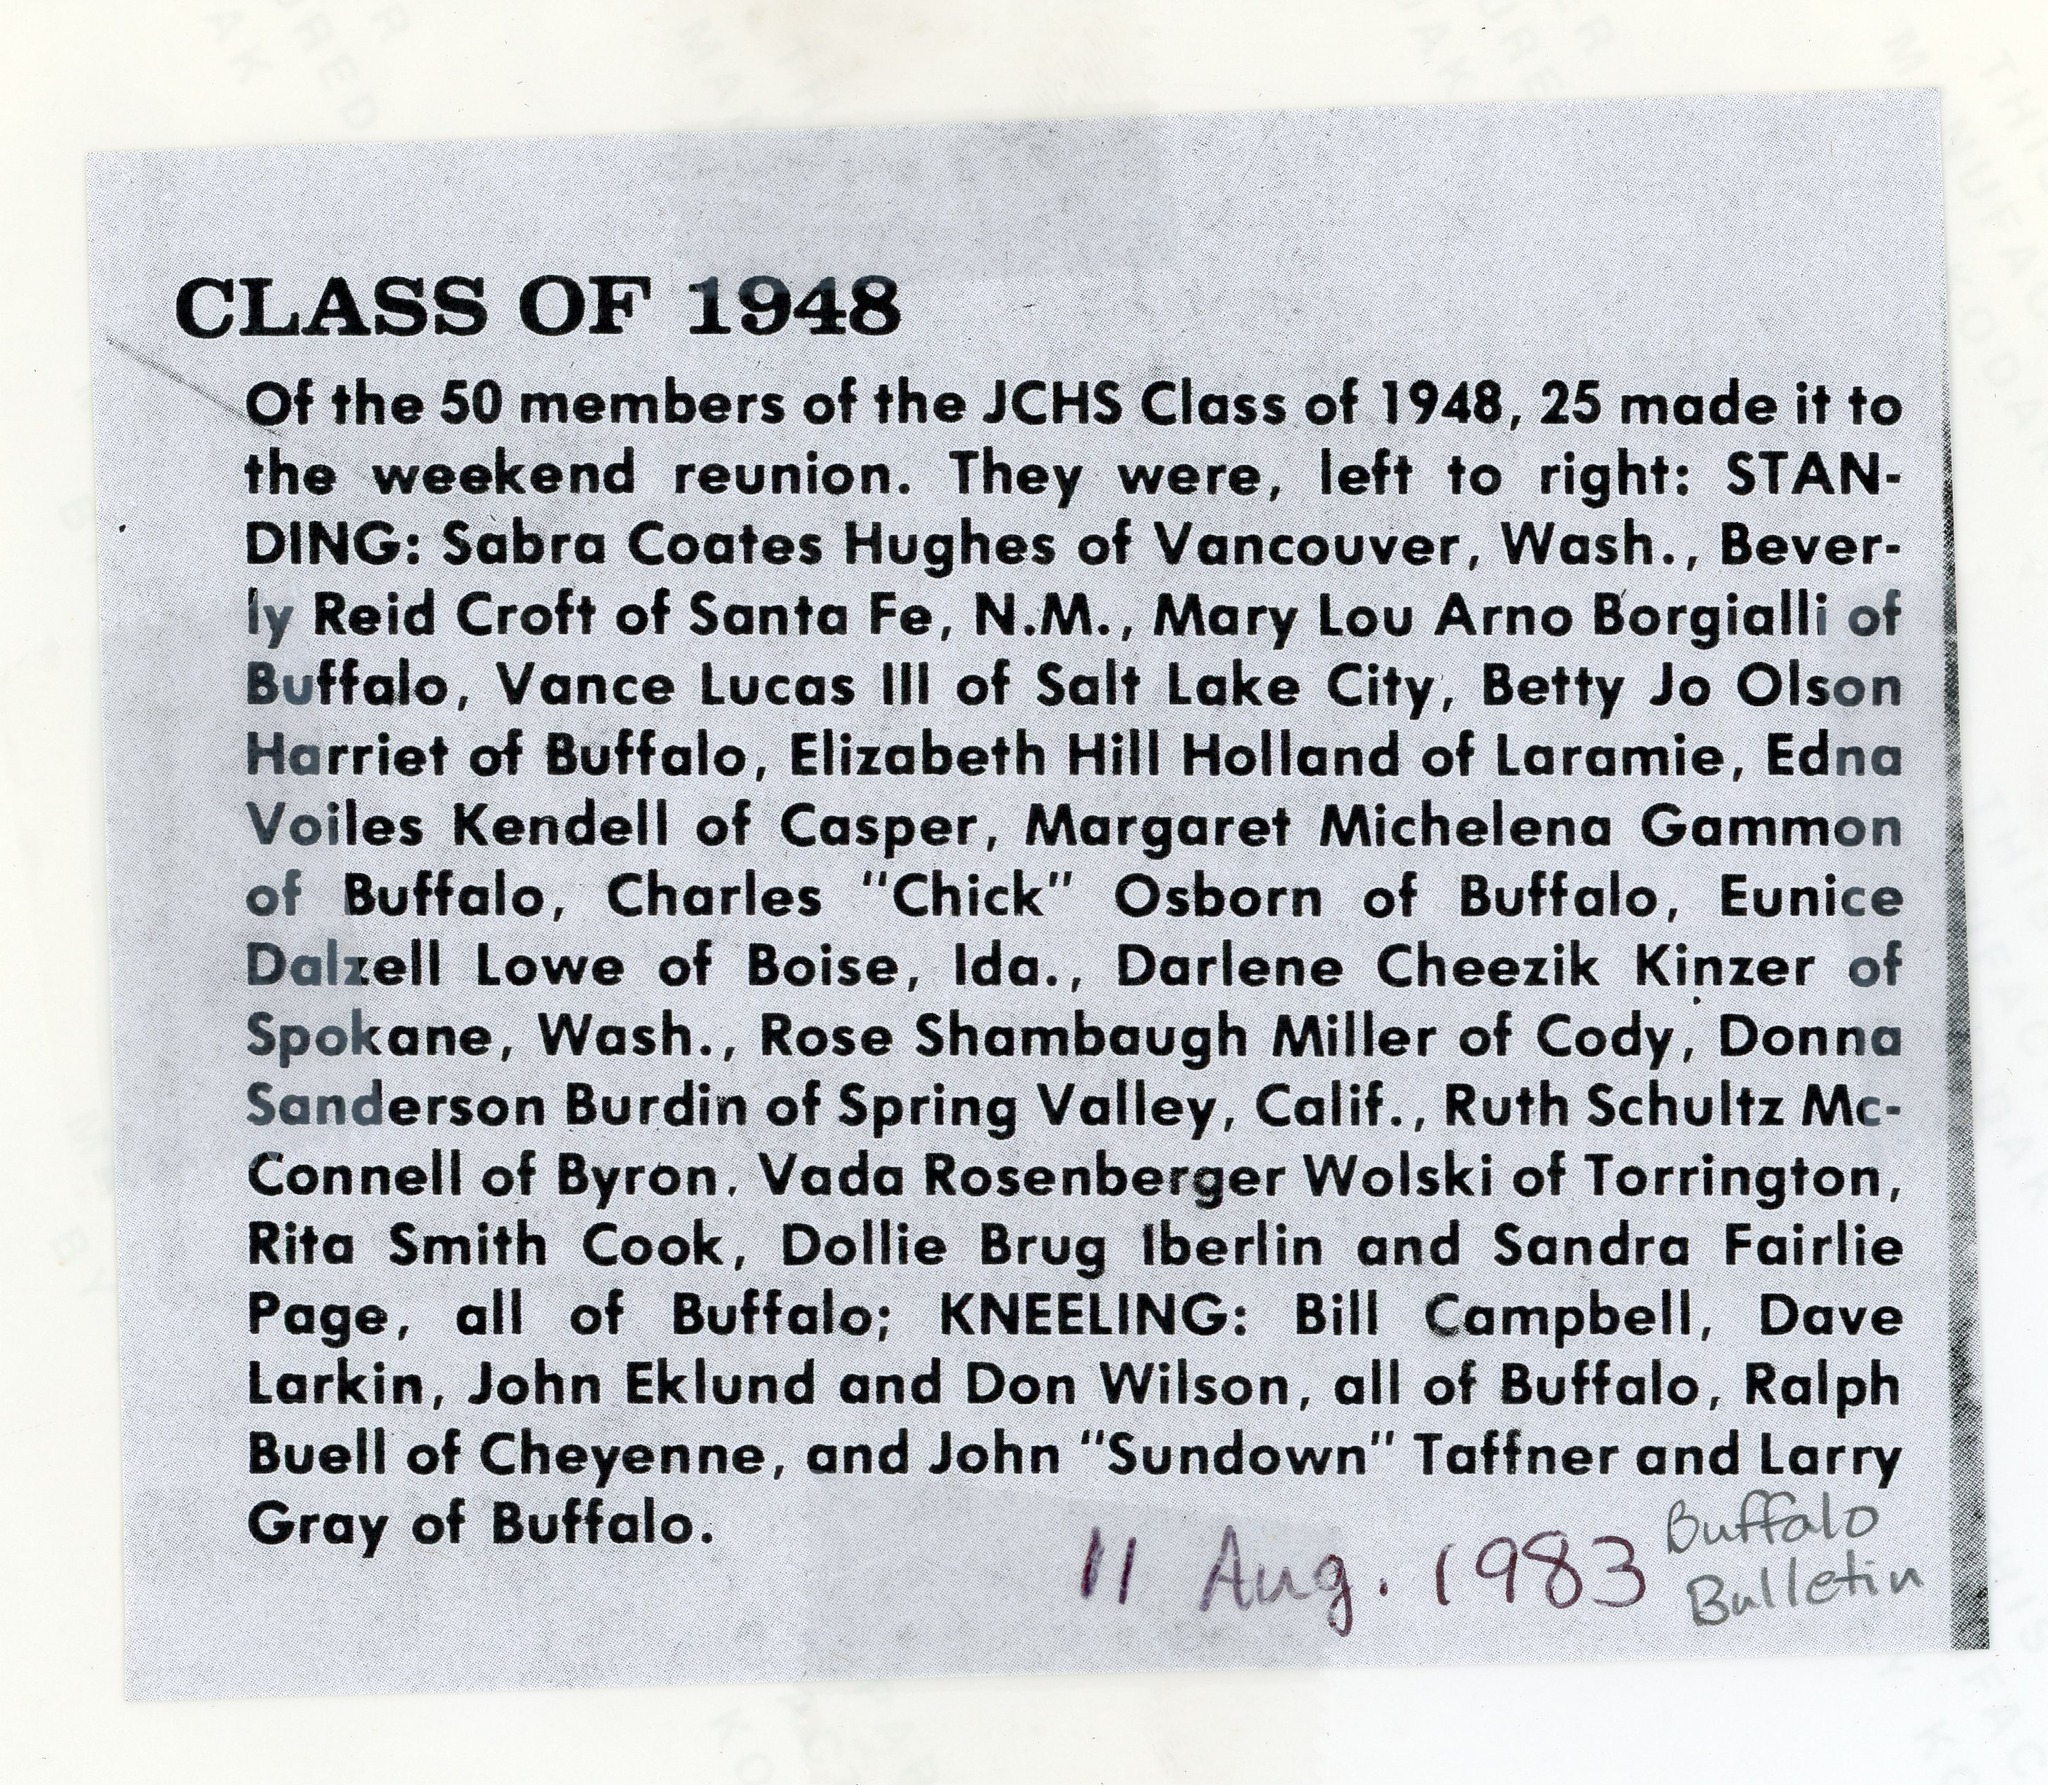 CLASS OF 1948
Of the 50 members of the JCHS Class of 1948, 25 made it to
the weekend reunion. They were, left to right: STAN-
DING: Sabra Coates Hughes of Vancouver, Wash., Bever-
ly Reid Croft of Santa Fe, N.M., Mary Lou Arno Borgialli of
Buffalo, Vance Lucas III of Salt Lake City, Betty Jo Olson
Harriet of Buffalo, Elizabeth Hill Holland of Laramie, Edna
Voiles Kendell of Casper, Margaret Michelena Gammon
of Buffalo, Charles "Chick" Osborn of Buffalo, Eunice
Dalzell Lowe of Boise, Ida., Darlene Cheezik Kinzer of
Spokane, Wash., Rose Shambaugh Miller of Cody, Donna
Sanderson Burdin of Spring Valley, Calif., Ruth Schultz Mc-
Connell of Byron, Vada Rosenberger Wolski of Torrington,
Rita Smith Cook, Dollie Brug Iberlin and Sandra Fairlie
Page, all of Buffalo; KNEELING: Bill Campbell, Dave
Larkin, John Eklund and Don Wilson, all of Buffalo, Ralph
Buell of Cheyenne, and John "Sundown" Taffner and Larry
Gray of Buffalo.
11 Aug. 1983
Buffalo
Bulletin